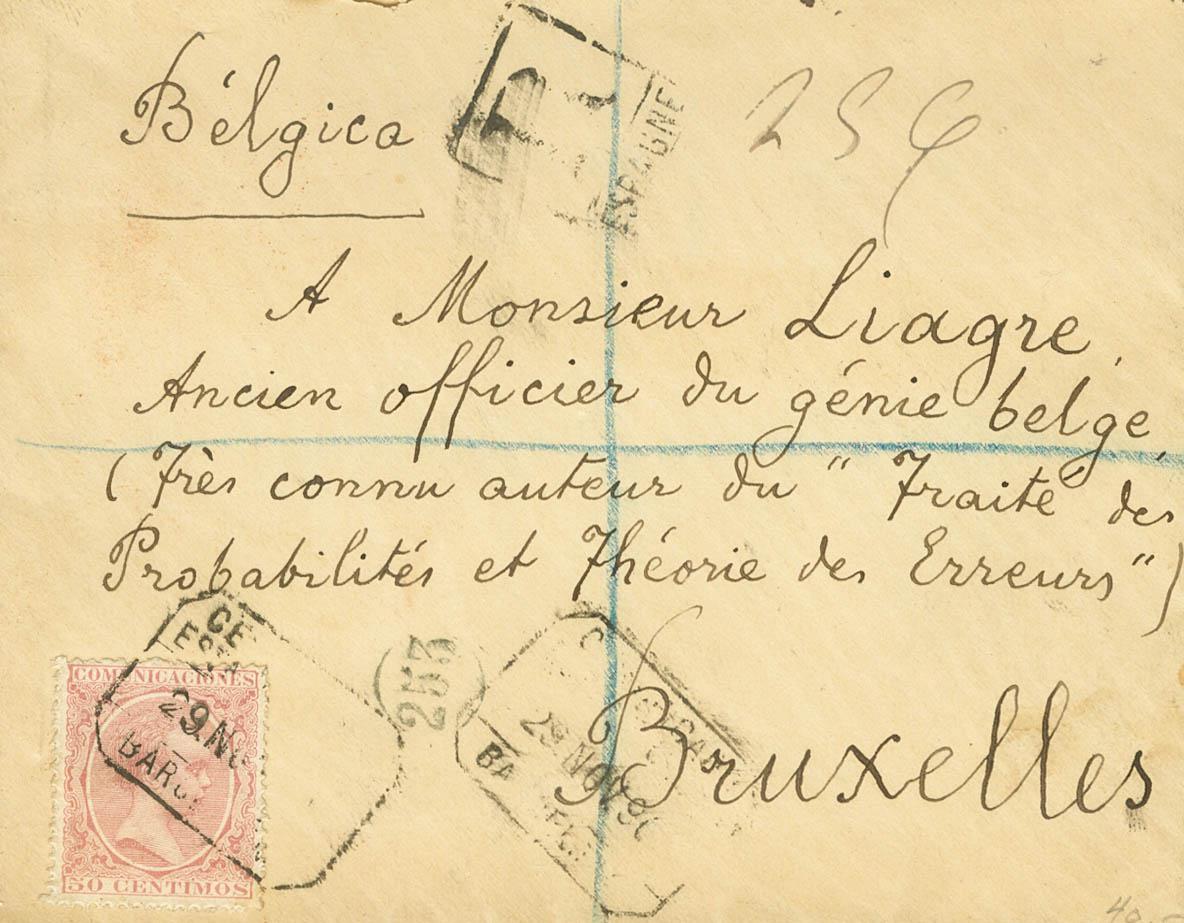 Bélgica
R
ESPAGNE
A Monsieur Liagre,
Ancien officier du génie belge,
(Très connu auteur du "Traité des
Probabilités et Théorie des Erreurs")
253
Bruxelles
COMUNICACIONES
29.NO
29 NOV 90
50 CENTIMOS